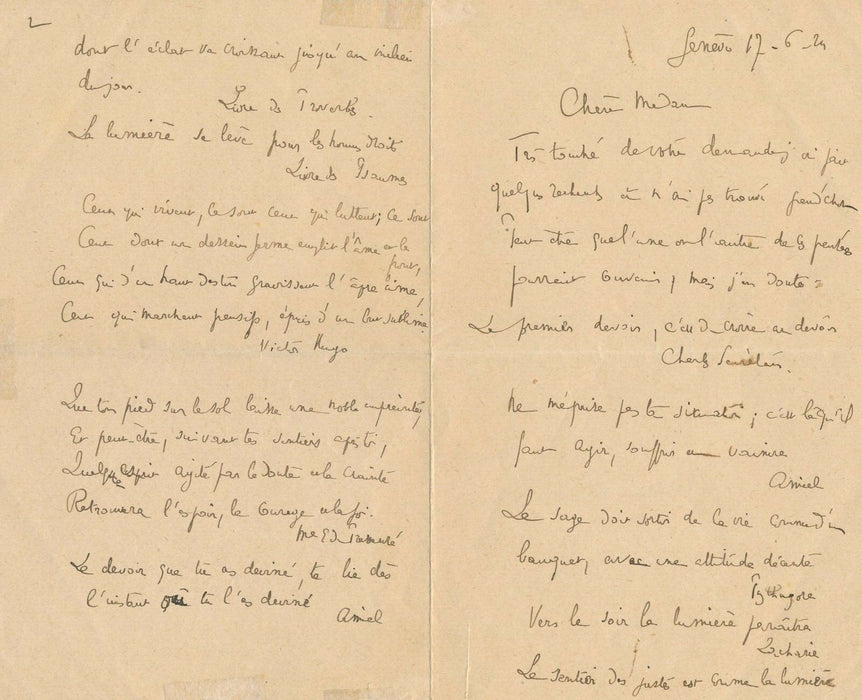 Genève 17-6-24
Chère Madame
Très touché de votre demande j'ai fait
quelques recherches et n'ai pas trouvé grand'chose
Peut être que l'une ou l'autre de ces pensées
pourrait convenir, mais j'en doute :
Le premier devoir, c'est de croire au devoir
Charles Secrétan.
Ne méprise pas ta situation ; c'est là qu'il
faut agir, souffrir et vaincre
Amiel
Le sage doit sortir de la vie comme d'un
banquet, avec une attitude décente
Pythagore
Vers le soir la lumière paraîtra
Zacharie
Le sentier des justes est comme la lumière
2
dont l'éclat va croissant jusqu'au milieu
du jour.
Livre des Proverbes.
La lumière se lève pour les hommes droits
Livre des Psaumes
Ceux qui vivent, ce sont ceux qui luttent ; ce sont
Ceux dont un dessein ferme emplit l'âme et le
front,
Ceux qui d'un haut destin gravissent l'âpre cime,
Ceux qui marchent pensifs, épris d'un but sublime
Victor Hugo
Que ton pied sur le sol laisse une noble empreinte,
Et peut-être, suivant tes sentiers après toi,
Quelque esprit agité par le doute et la crainte
Retrouvera l'espoir, le courage et la foi.
Me Ed.
Le devoir que tu as deviné, te lie dès
l'instant où tu l'as deviné
Amiel